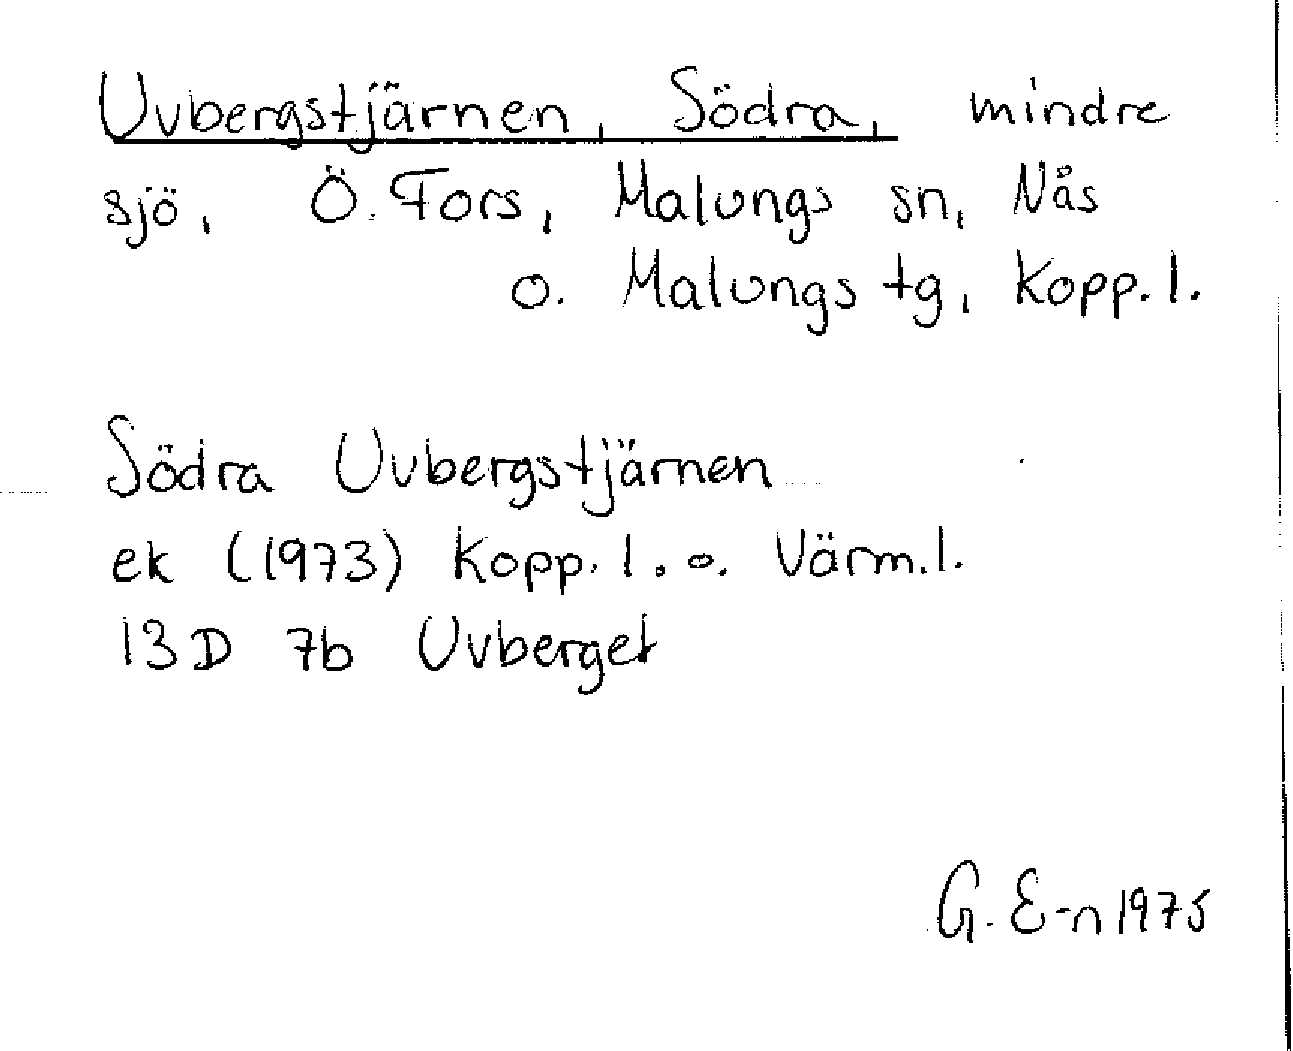 Uvbergstjärnen, Södra, mindre
sjö, Ö. Fors, Malungs sn, Nås
o. Malungs tg, Kopp. l.
Södra Uvbergstjärnen
ek (1973) Kopp. l. o. Värm. l.
13 D 7b Uvberget
G. E-n 1975